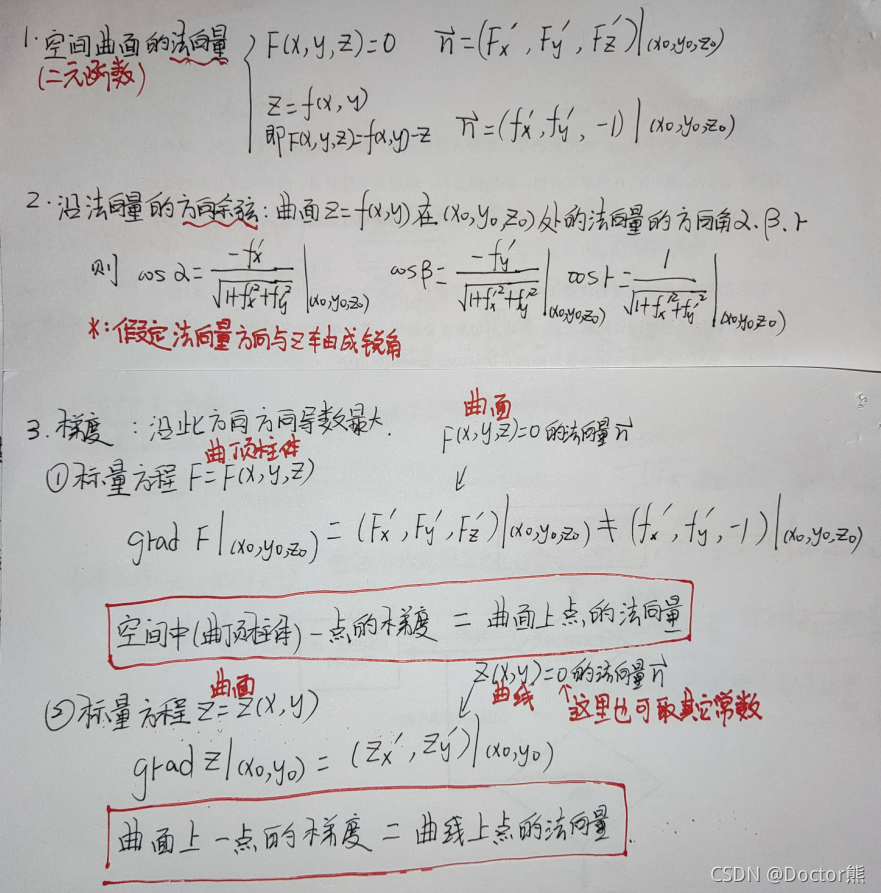 1. 空间曲面的法向量 F(x,y,z)=0 n⃗=(Fx′, Fy′, Fz′)|(x0,y0,z0)
(二元函数)
z=f(x,y)
即F(x,y,z)=f(x,y)-z n⃗=(fx′, fy′, -1)|(x0,y0,z0)
2. 沿法向量的方向余弦: 曲面z=f(x,y)在(x0,y0,z0)处的法向量的方向角α、β、r
则 cosα=-fx′/√(1+fx′²+fy′²)|(x0,y0,z0) cosβ=-fy′/√(1+fx′²+fy′²)|(x0,y0,z0) cosr=1/√(1+fx′²+fy′²)|(x0,y0,z0)
*: 假定法向量方向与z轴成锐角
3. 梯度 : 沿此方向方向导数最大.
曲面
F(x,y,z)=0的法向量n⃗
曲顶柱体
①标量方程F=F(x,y,z)
grad F|(x0,y0,z0) = (Fx′, Fy′, Fz′)|(x0,y0,z0) ≠ (fx′, fy′, -1)|(x0,y0,z0)
空间中(曲顶柱体)一点的梯度 = 曲面上点的法向量
z(x,y)=0的法向量n⃗
曲面
曲线 ↑这里也可取其它常数
②标量方程z=z(x,y)
grad z|(x0,y0) = (zx′, zy′)|(x0,y0)
曲面上一点的梯度 = 曲线上点的法向量.
CSDN @Doctor熊